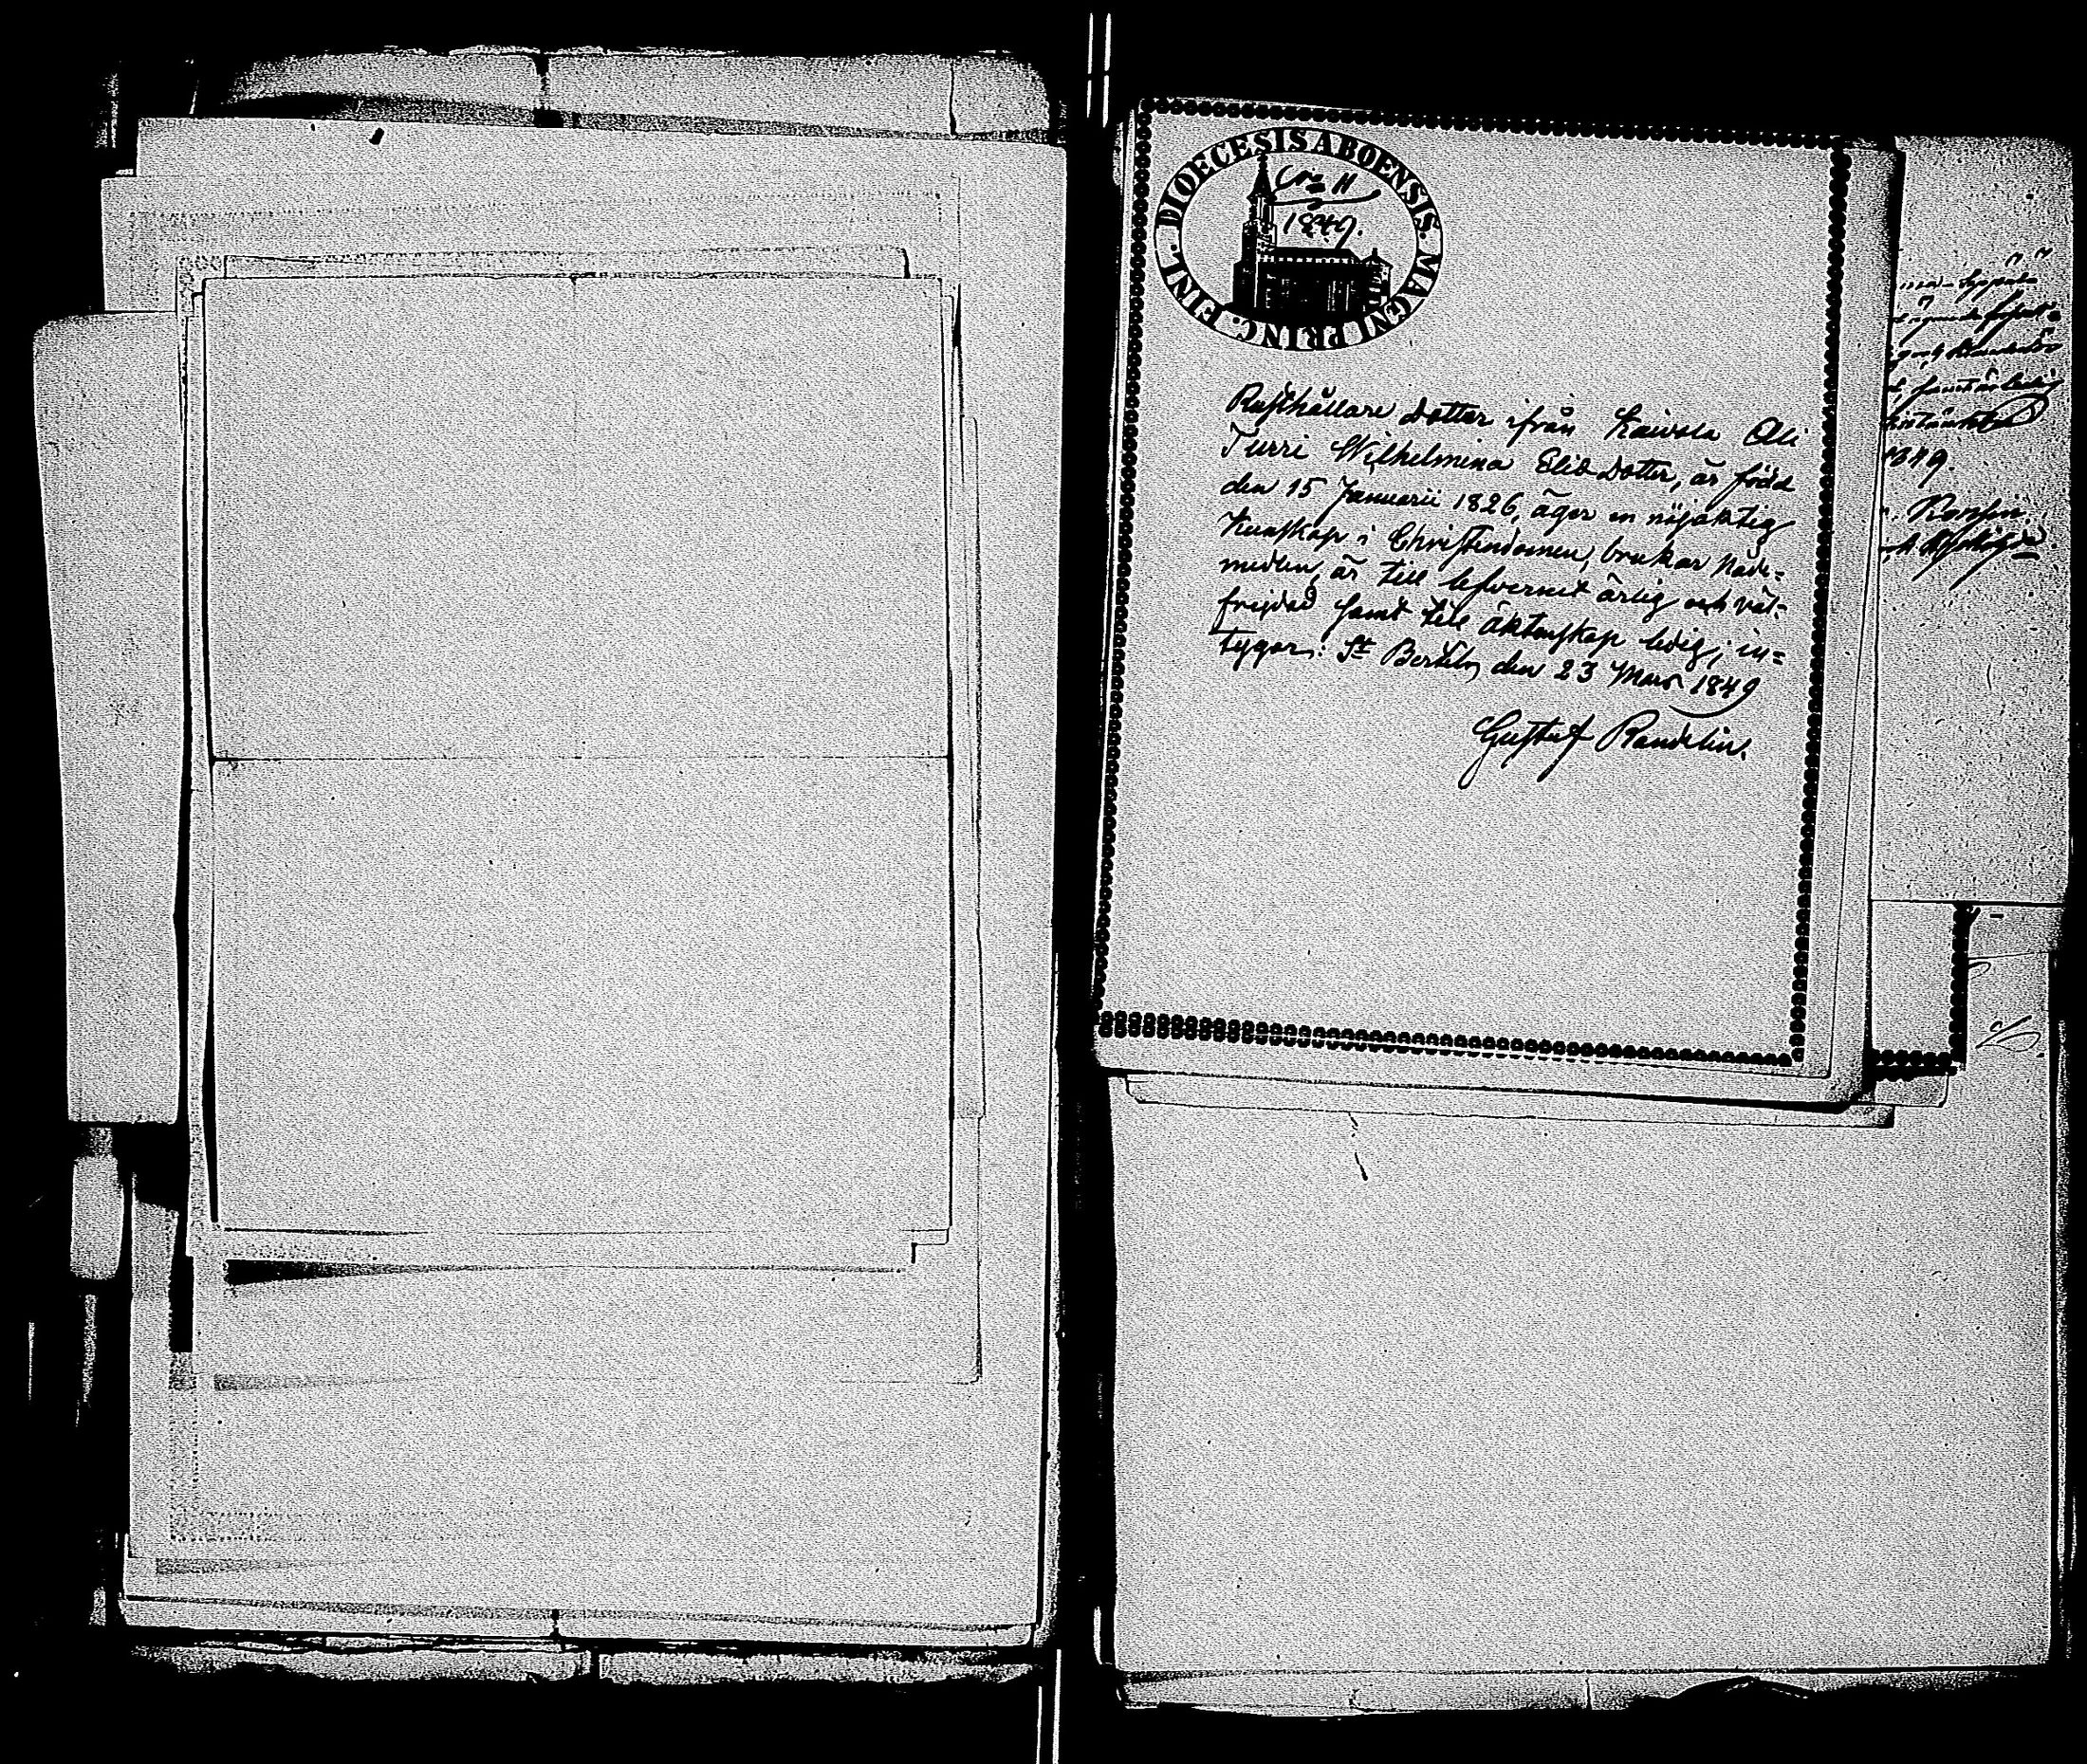 DIOECESIS ABOENSIS. MAGNI PRINC. FINL.
No 11
1849.
Rusthållare Dotter ifrån Kaivola Olli
Turri Wilhelmina Elis Dotter, är född
den 15 Januarii 1826, äger en nöjaktig
Kunskap i Christendomen, brukar Nåde-
medlen, är till lefvernet ärlig och väl-
frejdad samt till äktenskap ledig; in-
tygar: St Bertils den 23 Mars 1849
Gustaf Randelin.
1849.